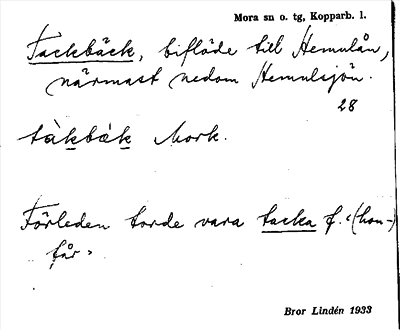 Mora sn o. tg, Kopparb. l.
Tackbäck, biflöde till Hemulån,
närmast nedom Hemulsjön.
28
tàkbæ̀k Mork.
Förleden torde vara tacka f. "(hon-)
får"
Bror Lindén 1933